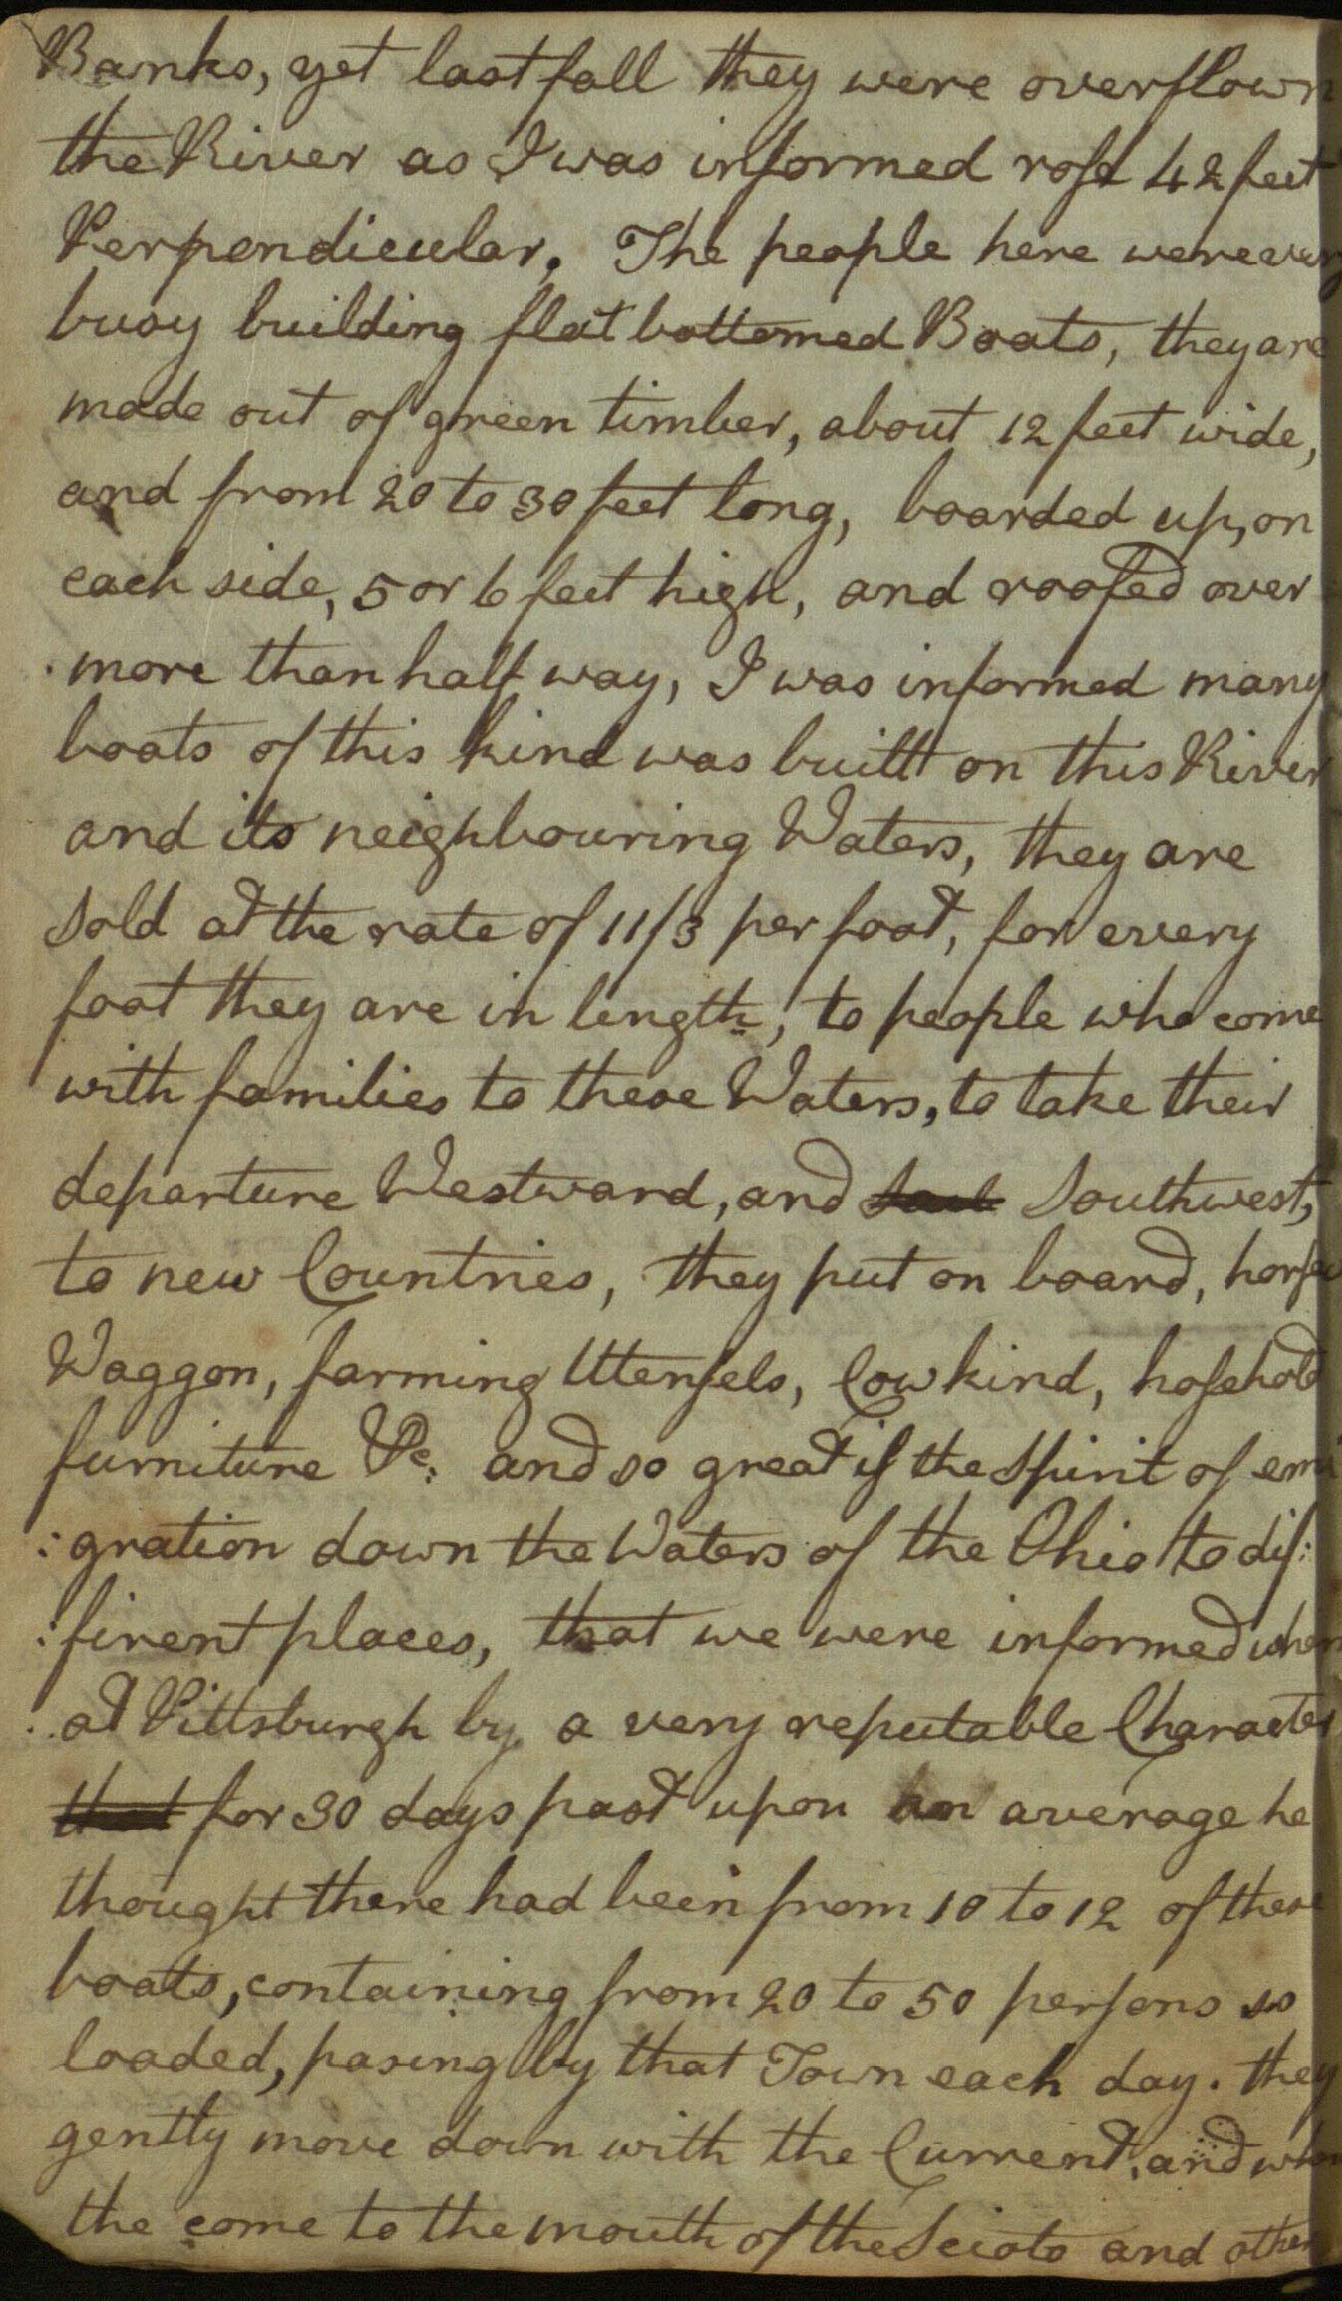 Banks, yet last fall they were overflown
the River as I was informed rose 42 feet
Perpendicular. The people here were very
busy building flat bottomed Boats, they are
made out of green timber, about 12 feet wide,
and from 20 to 30 feet long, boarded up, on
each side, 5 or 6 feet high, and roofed over
more than half way, I was informed many
boats of this kind was built on this River
and its neighbouring Waters, they are
Sold at the rate of 11/3 per foot, for every
foot they are in length, to people who come
with families to these Waters, to take their
departure Westward, and Southwest,
to new Countries, they put on board, horses
Waggon, farming Utensels, Cow kind, hosehold
furniture &c: and so great is the Spirit of emi
:gration down the Waters of the Ohio to dif:
:firent places, that we were informed when
at Pittsburgh by a very reputable Character
that for 30 days past upon an average he
thought there had been from 10 to 12 of these
boats, containing from 20 to 50 persons so
loaded, pasing by that Town each day. they
gently move down with the Current, and when
the come to the mouth of the Scioto and other